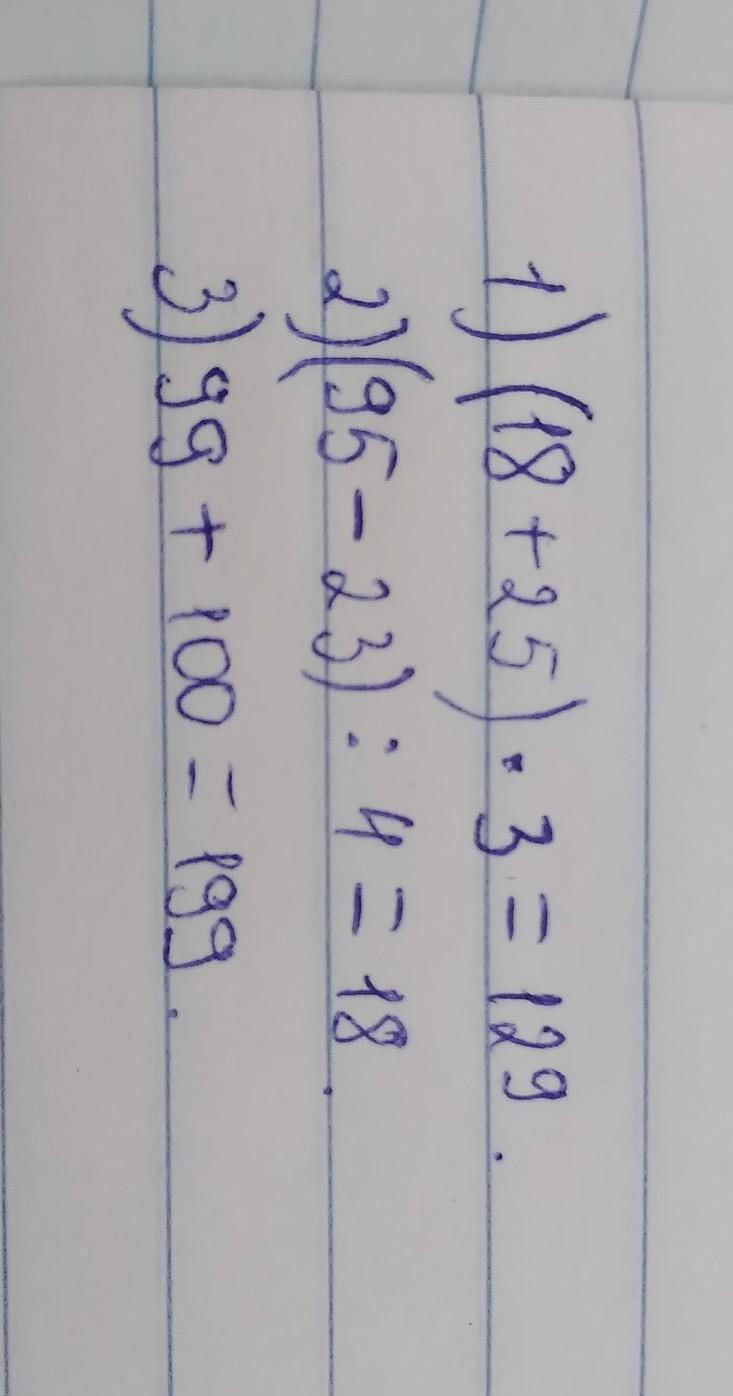 1) (18 + 25) · 3 = 129.
2) (95 - 23) : 4 = 18.
3) 99 + 100 = 199.